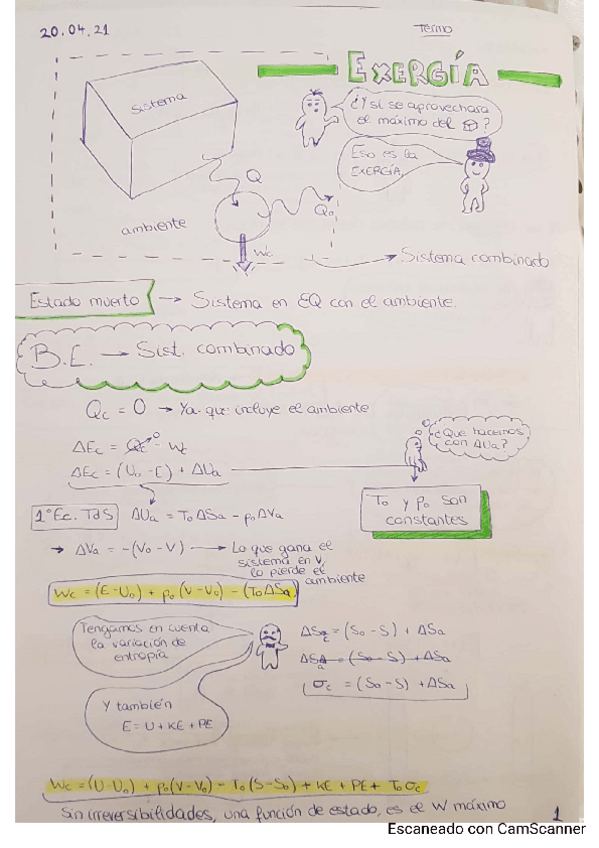 20.04.21
Termo
EXERGÍA
Sistema
¿Y si se aprovechara
el máximo del
?
Eso es la
EXERGÍA
Q
Q₀
ambiente
Wc
Sistema combinado
Estado muerto → Sistema en EQ con el ambiente.
B.E. → Sist. combinado
Qc = 0 → Ya que incluye el ambiente
ΔEc = Qc⁰ - Wc
¿Qué hacemos
con ΔUa?
ΔEc = (U₀ - E) + ΔUa
T₀ y p₀ son
constantes
1ª Ec. TdS ΔUa = T₀ΔSa - p₀ΔVa
→ ΔVa = -(V₀ - V) → Lo que gana el
sistema en V,
lo pierde el
ambiente
Wc = (E - U₀) + p₀(V - V₀) - (T₀ΔSa)
Tengamos en cuenta
la variación de
entropía
ΔSc = (S₀ - S) + ΔSa
ΔSa = (S₀ - S) + ΔSa
σc = (S₀ - S) + ΔSa
Y también
E = U + KE + PE
Wc = (U - U₀) + p₀(V - V₀) - T₀(S - S₀) + KE + PE + T₀σc
Sin irreversibilidades, una función de estado, es el W máximo
1
Escaneado con CamScanner